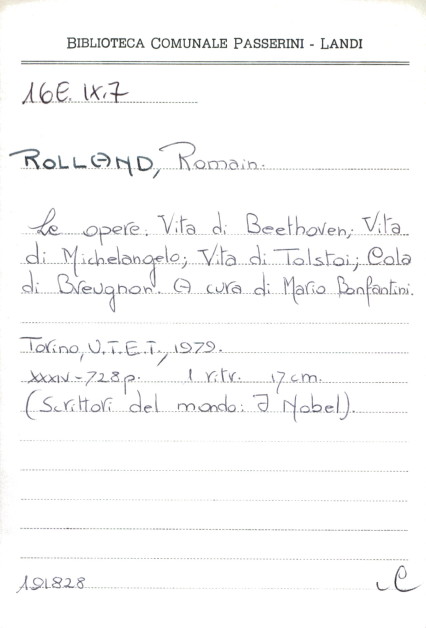 BIBLIOTECA COMUNALE PASSERINI - LANDI
16E. IX.7
ROLLAND, Romain.
Le opere. Vita di Beethoven; Vita
di Michelangelo; Vita di Tolstoi; Cola
di Breugnon. A cura di Mario Bonfantini.
Torino, U.T.E.T., 1979.
XXXIV-728 p. 1 ritr. 17 cm.
(Scrittori del mondo: I Nobel).
191828